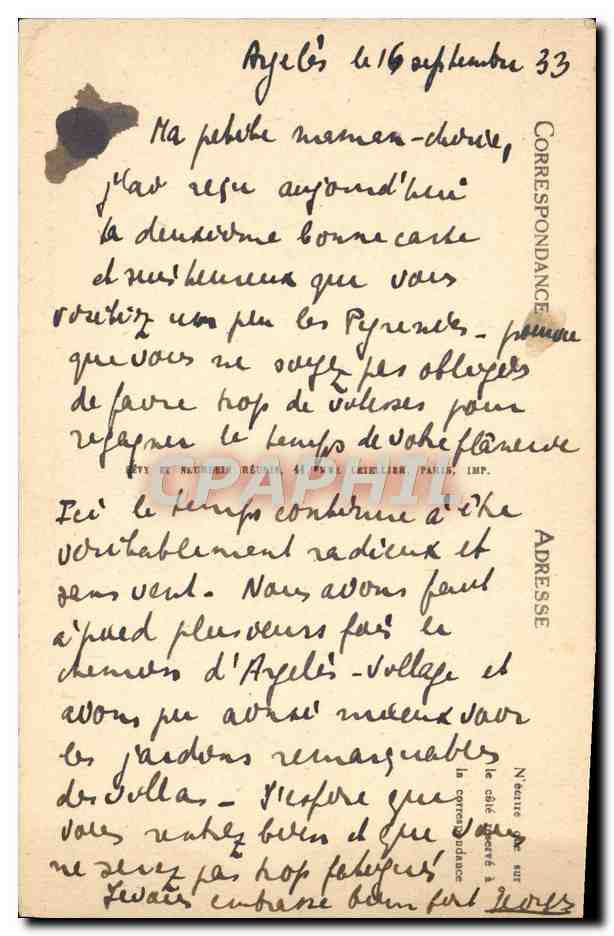 Argelès le 16 septembre 33
Ma petite maman-chérie,
j'ai reçu aujourd'hui
ta deuxième bonne carte
et suis heureux que vous
visitiez un peu les Pyrénées - pourvu
que vous ne soyez pas obligés
de faire trop de vitesses pour
regagner le temps de votre flânerie
LÉVY ET NEURDEIN RÉUNIS, 44 RUE LETELLIER, PARIS, IMP.
CPAPHIL
Ici le temps continue à être
véritablement radieux et
sans vent. Nous avons fait
à pied plusieurs fois le
chemin d'Argelès-village et
avons pu ainsi mieux voir
les jardins remarquables
des villas - J'espère que
vous rentrez bien et que vous
ne serez pas trop fatigués
Je vous embrasse bien fort Georges
CORRESPONDANCE
ADRESSE
N'écrire que sur
le côté réservé à
la correspondance